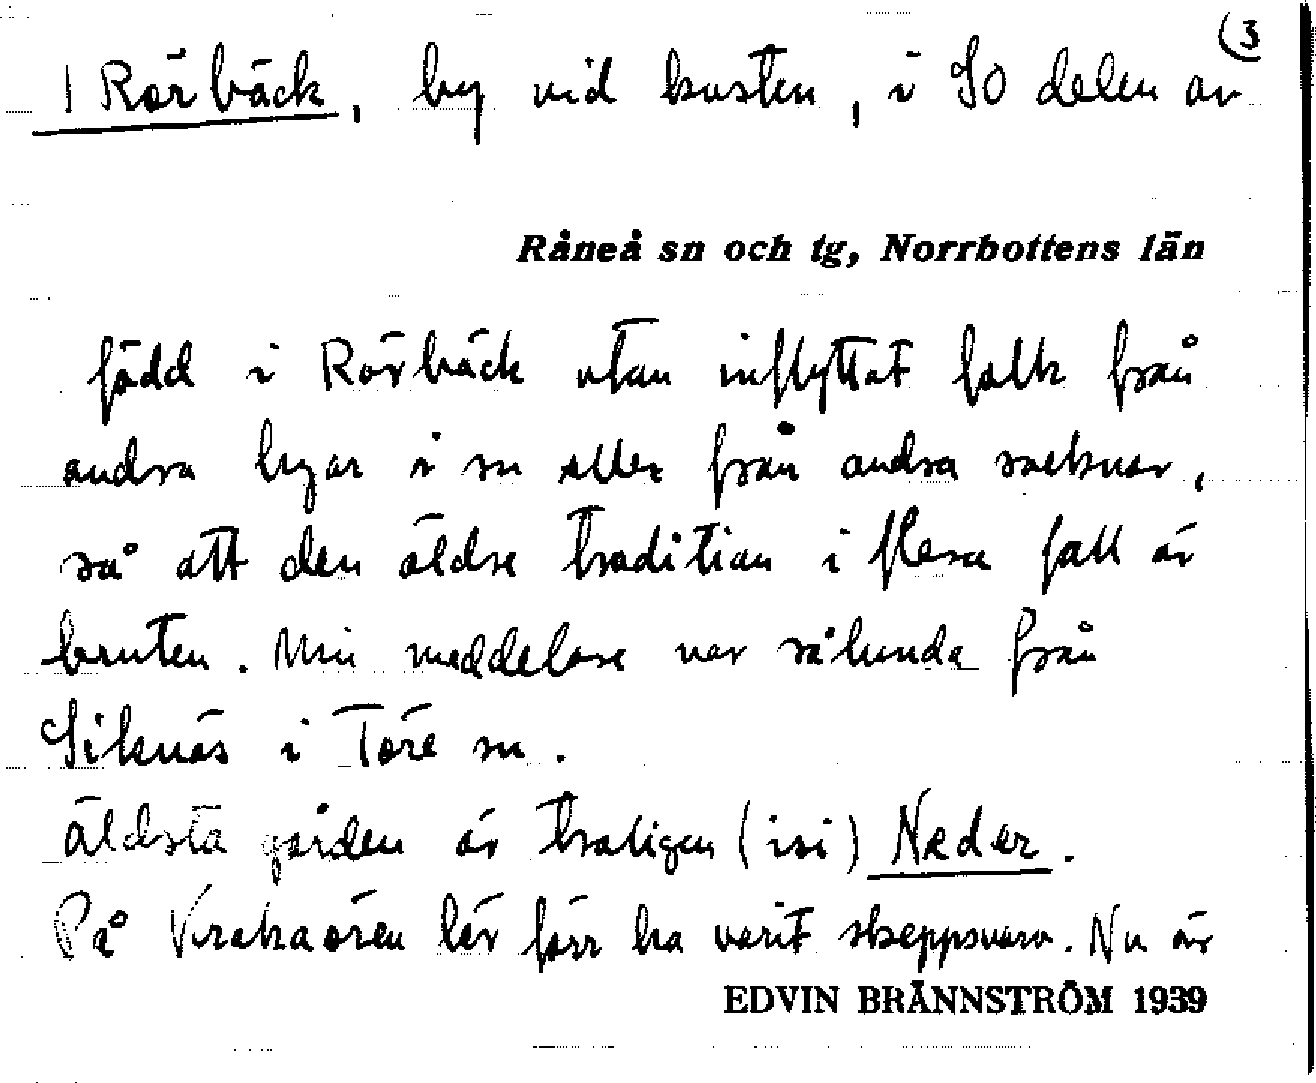 (3
1 Rörbäck, by vid kusten, i SO delen av
Råneå sn och tg, Norrbottens län
född i Rörbäck utan inflyttat folk från
andra byar i sn eller från andra socknar,
så att den äldre tradition i flera fall är
bruten. Min meddelare var sålunda från
Siknäs i Töre sn.
Äldsta gården är troligen (isi) Neder.
På Vrakaören lär förr ha varit skeppsvarv. Nu är
EDVIN BRÄNNSTRÖM 1939